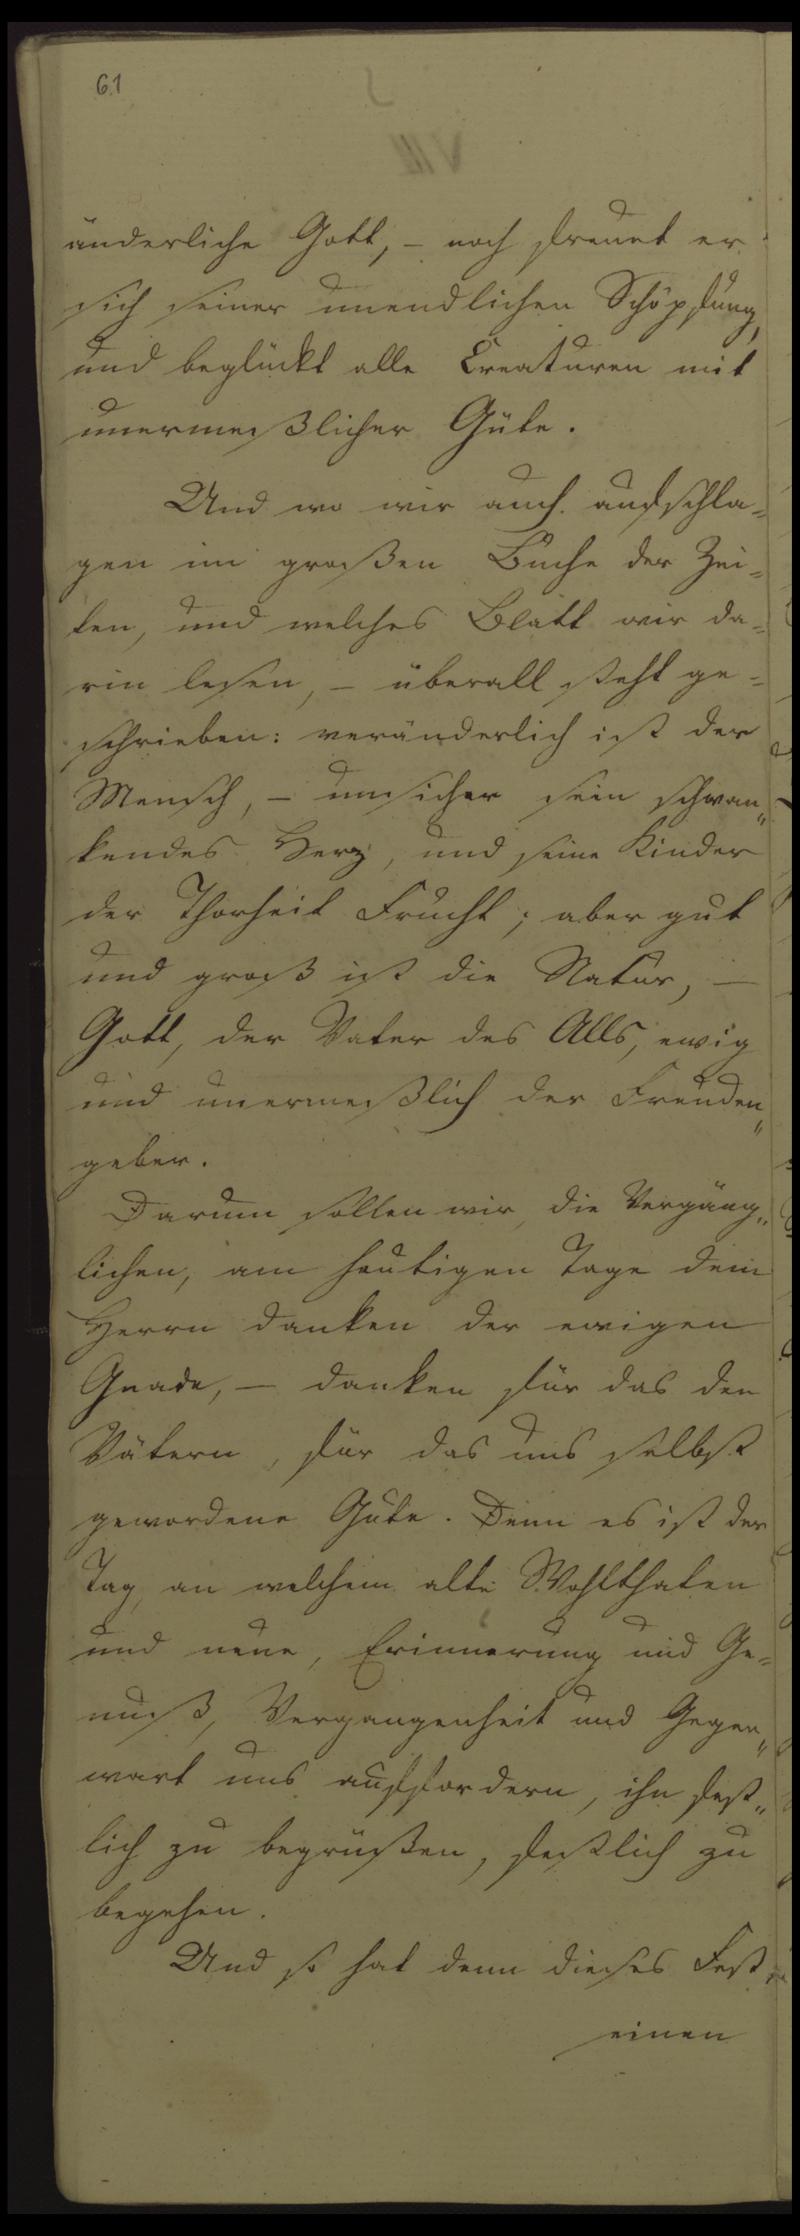 61
änderliche Gott, – noch freuet er
sich seiner unendlichen Schöpfung,
und beglückt alle Creaturen mit
unermeßlicher Güte.
Und wo wir auch aufschla=
gen im großen Buche der Zei=
ten, und welches Blatt wir da=
rin lesen, – überall steht ge=
schrieben: veränderlich ist der
Mensch, – unsicher sein schwan„
kendes Herz, und seine Kinder
der Thorheit Frucht; aber gut
und groß ist die Natur, –
Gott, der Vater des Alls, ewig
und unermeßlich der Freuden„
geber.
Darum sollen wir, die Vergäng„
lichen, am heutigen Tage dem
Herrn danken der ewigen
Gnade, – danken für das den
Vätern, für das uns selbst
gewordene Gute. Denn es ist der
Tag, an welchem alte Wohlthaten
und neue, Erinnerung und Ge=
nuß, Vergangenheit und Gegen„
wart uns auffordern, ihn fest„
lich zu begrüßen, festlich zu
begehen.
Und so hat denn dieses Fest
einen